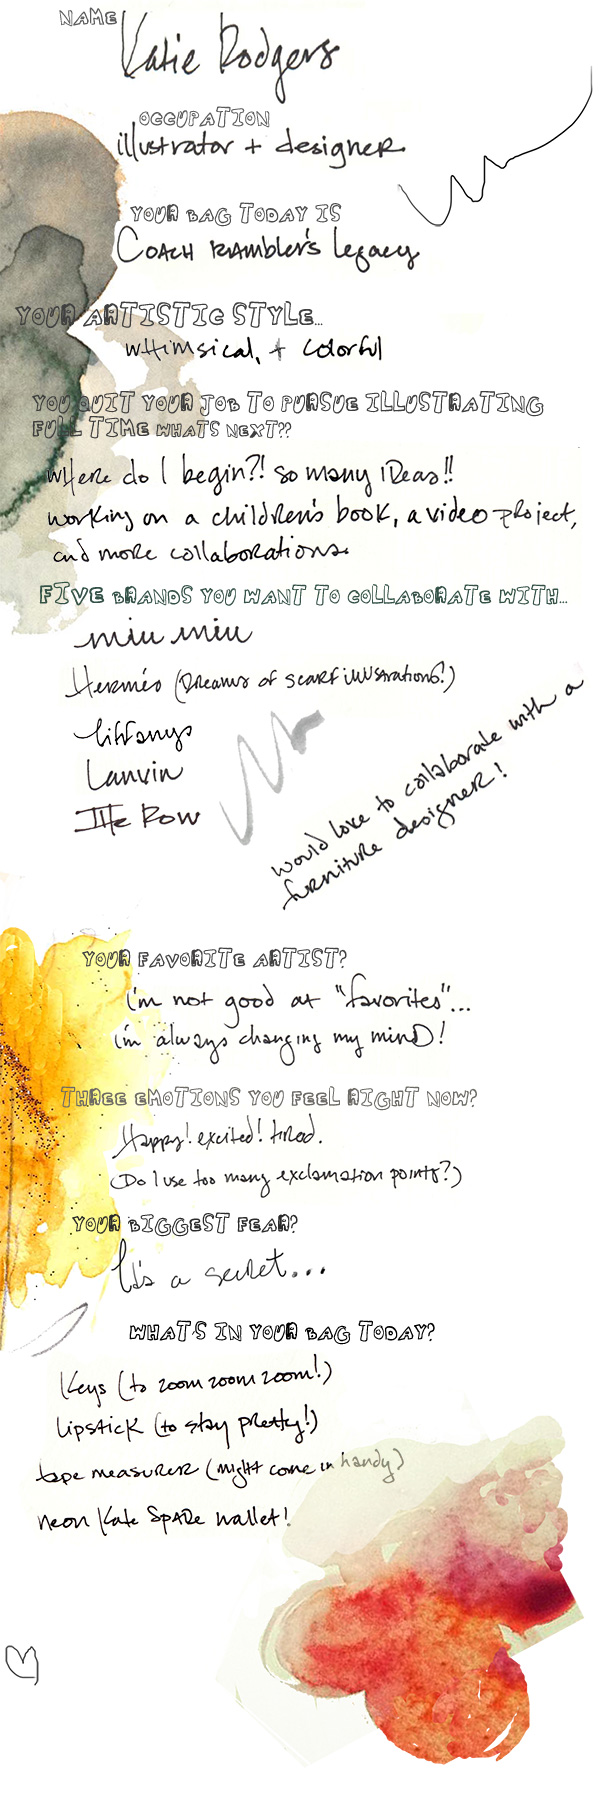 NAME
Katie Rodgers
OCCUPATION
illustrator + designer
YOUR BAG TODAY IS
Coach Rambler's Legacy
YOUR ARTISTIC STYLE...
whimsical, + colorful
YOU QUIT YOUR JOB TO PURSUE ILLUSTRATING
FULL TIME WHATS NEXT??
where do I begin?! so many ideas!!
working on a children's book, a video project,
and more collaborations.
FIVE BRANDS YOU WANT TO COLLABORATE WITH...
miu miu
Hermés (Dreams of scarf illustrations!)
tiffanys
Lanvin
The Row
would love to collaborate with a
furniture designer!
YOUR FAVORITE ARTIST?
i'm not good at "favorites"...
i'm always changing my mind!
THREE EMOTIONS YOU FEEL RIGHT NOW?
Happy! excited! tired.
(Do I use too many exclamation points?)
YOUR BIGGEST FEAR?
It's a secret...
WHATS IN YOUR BAG TODAY?
keys (to zoom zoom zoom!)
lipstick (to stay pretty!)
tape measurer (might come in handy)
neon Kate Spade wallet!